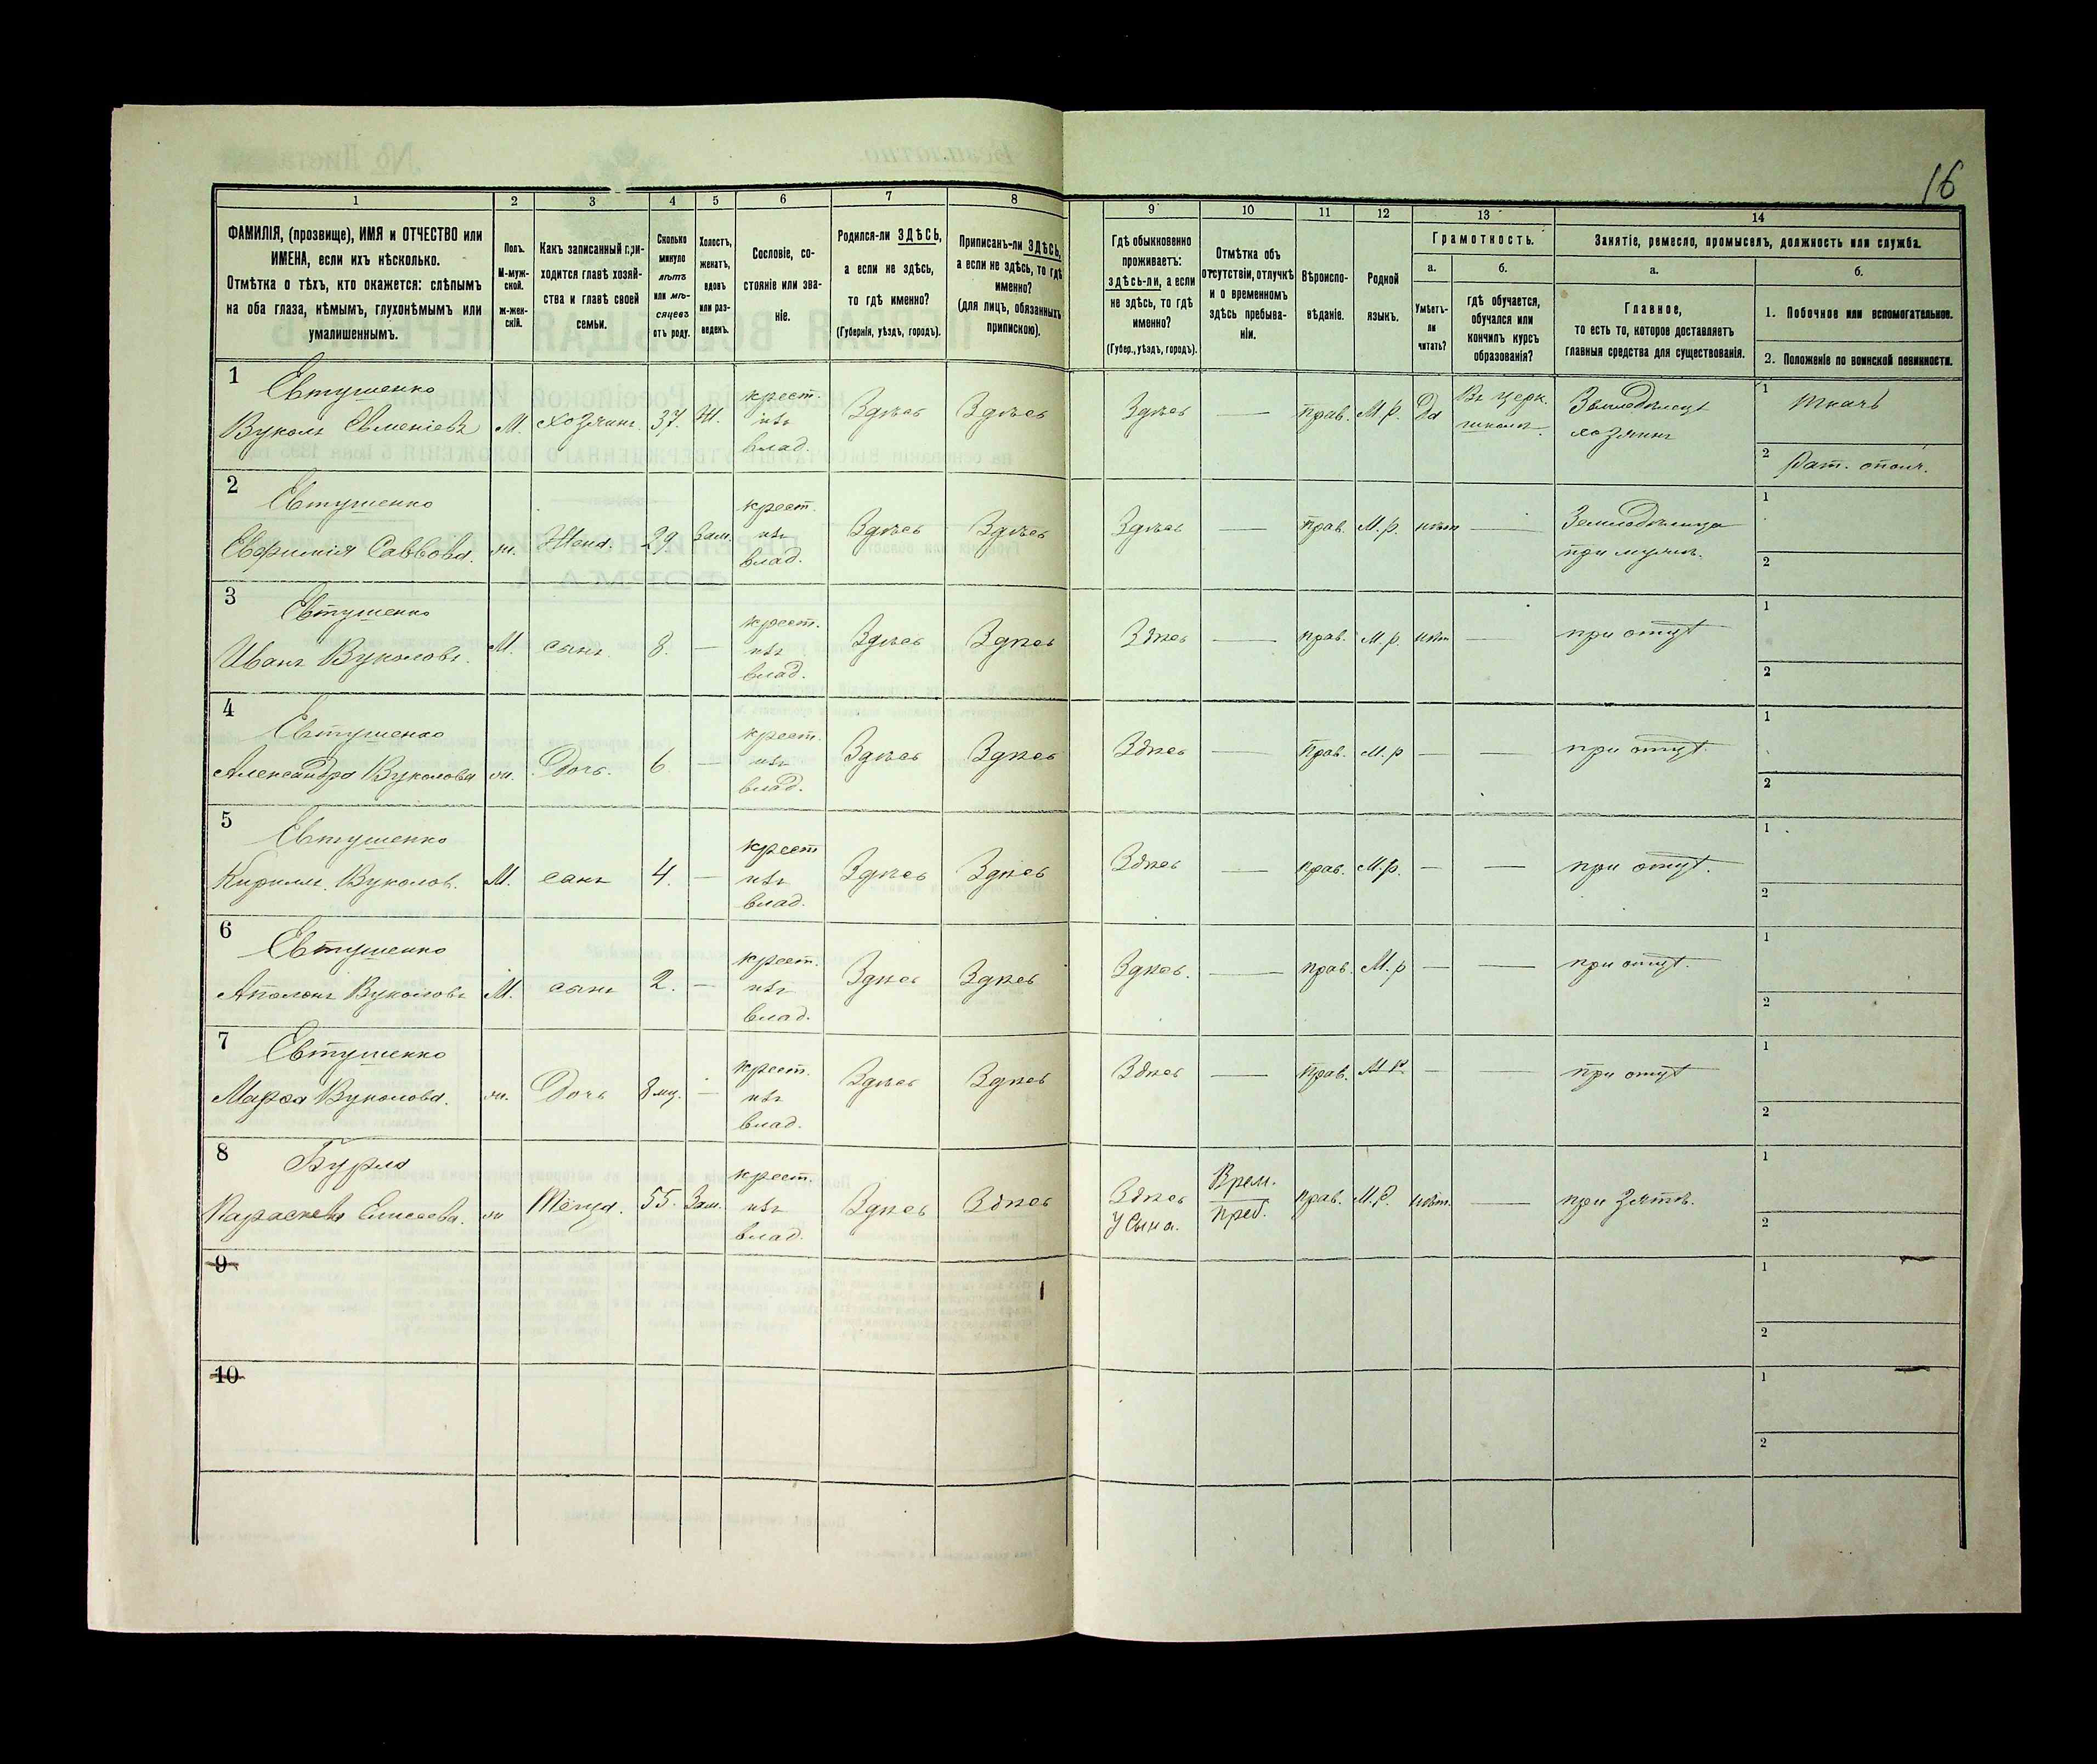 16
1
2
3
4
5
6
7
8
9
10
11
12
13
14
ФАМИЛІЯ, (прозвище), ИМЯ и ОТЧЕСТВО или
ИМЕНА, если ихъ нѣсколько.
Отмѣтка о тѣхъ, кто окажется: слѣпымъ
на оба глаза, нѣмымъ, глухонѣмымъ или
умалишеннымъ.
Полъ.
М-муж-
ской.
ж-жен-
скій.
Какъ записанный при-
ходится главѣ хозяй-
ства и главѣ своей
семьи.
Сколько
минуло
лѣтъ
или мѣ-
сяцевъ
отъ роду.
Холостъ,
женатъ,
вдовъ
или раз-
веденъ.
Сословіе, со-
стояніе или зва-
ніе.
Родился-ли ЗДѢСЬ,
а если не здѣсь,
то гдѣ именно?
(Губернія, уѣздъ, городъ).
Приписанъ-ли ЗДѢСЬ,
а если не здѣсь, то гдѣ
именно?
(для лицъ, обязанныхъ
припискою).
Гдѣ обыкновенно
проживаетъ:
здѣсь-ли, а если
не здѣсь, то гдѣ
именно?
(Губер., уѣздъ, городъ).
Отмѣтка объ
отсутствіи, отлучкѣ
и о временномъ
здѣсь пребыва-
ніи.
Вѣроиспо-
вѣданіе.
Родной
языкъ.
Грамотность.
а.
Умѣетъ-
ли
читать?
б.
гдѣ обучается,
обучался или
кончилъ курсъ
образованія?
Занятіе, ремесло, промыселъ, должность или служба.
а.
Главное,
то есть то, которое доставляетъ
главныя средства для существованія.
б.
1. Побочное или вспомогательное.
2. Положеніе по воинской повинности.
1
Евтушенко
Вуколъ Евменіевъ
М.
хозяинъ
37.
Ж.
крест.
изъ
влад.
Здѣсь
Здѣсь
Здѣсь
—
прав.
М.р.
Да
Въ церк.
школѣ.
Земледѣлецъ
хозяинъ
1
ткачъ
2
Рат. ополч.
2
Евтушенко
Евфимія Саввова.
ж.
Жена.
29
Зам.
крест.
изъ
влад.
Здѣсь
Здѣсь
Здѣсь
—
прав.
М.р.
нѣт
—
Земледѣлица
при мужѣ.
1
2
3
Евтушенко
Иванъ Вуколовъ.
М.
сынъ
8.
—
крест.
изъ
влад.
Здѣсь
Здѣсь
Здѣсь
—
прав.
М.р.
нѣт
—
при отцѣ
1
2
4
Евтушенко
Александра Вуколова
ж.
Дочь.
6
—
крест.
изъ
влад.
Здѣсь
Здѣсь
Здѣсь
—
Прав.
М.р
—
—
при отцѣ.
1
2
5
Евтушенко
Кириллъ Вуколов.
М.
сынъ
4.
—
крест
изъ
влад.
Здѣсь
Здѣсь
Здѣсь
—
прав.
М.р.
—
—
при отцѣ.
1
2
6
Евтушенко
Аполонъ Вуколовъ
М.
сынъ
2.
—
крест.
изъ
влад.
Здѣсь
Здѣсь
Здѣсь.
—
прав.
М.р
—
—
при отцѣ.
1
2
7
Евтушенко
Марѳа Вуколова.
ж.
Дочь
8 мц.
—
крест.
изъ
влад.
Здѣсь
Здѣсь
Здѣсь
—
Прав.
М.р.
—
—
при отцѣ
1
2
8
Бурла
Параскева Елисеева.
ж
Теща.
55.
Зам.
крест.
изъ
влад.
Здѣсь
Здѣсь
Здѣсь
у сына.
Врем.
преб.
прав.
М.р.
нѣт.
—
при зятѣ.
1
2
9
1
2
10
1
2